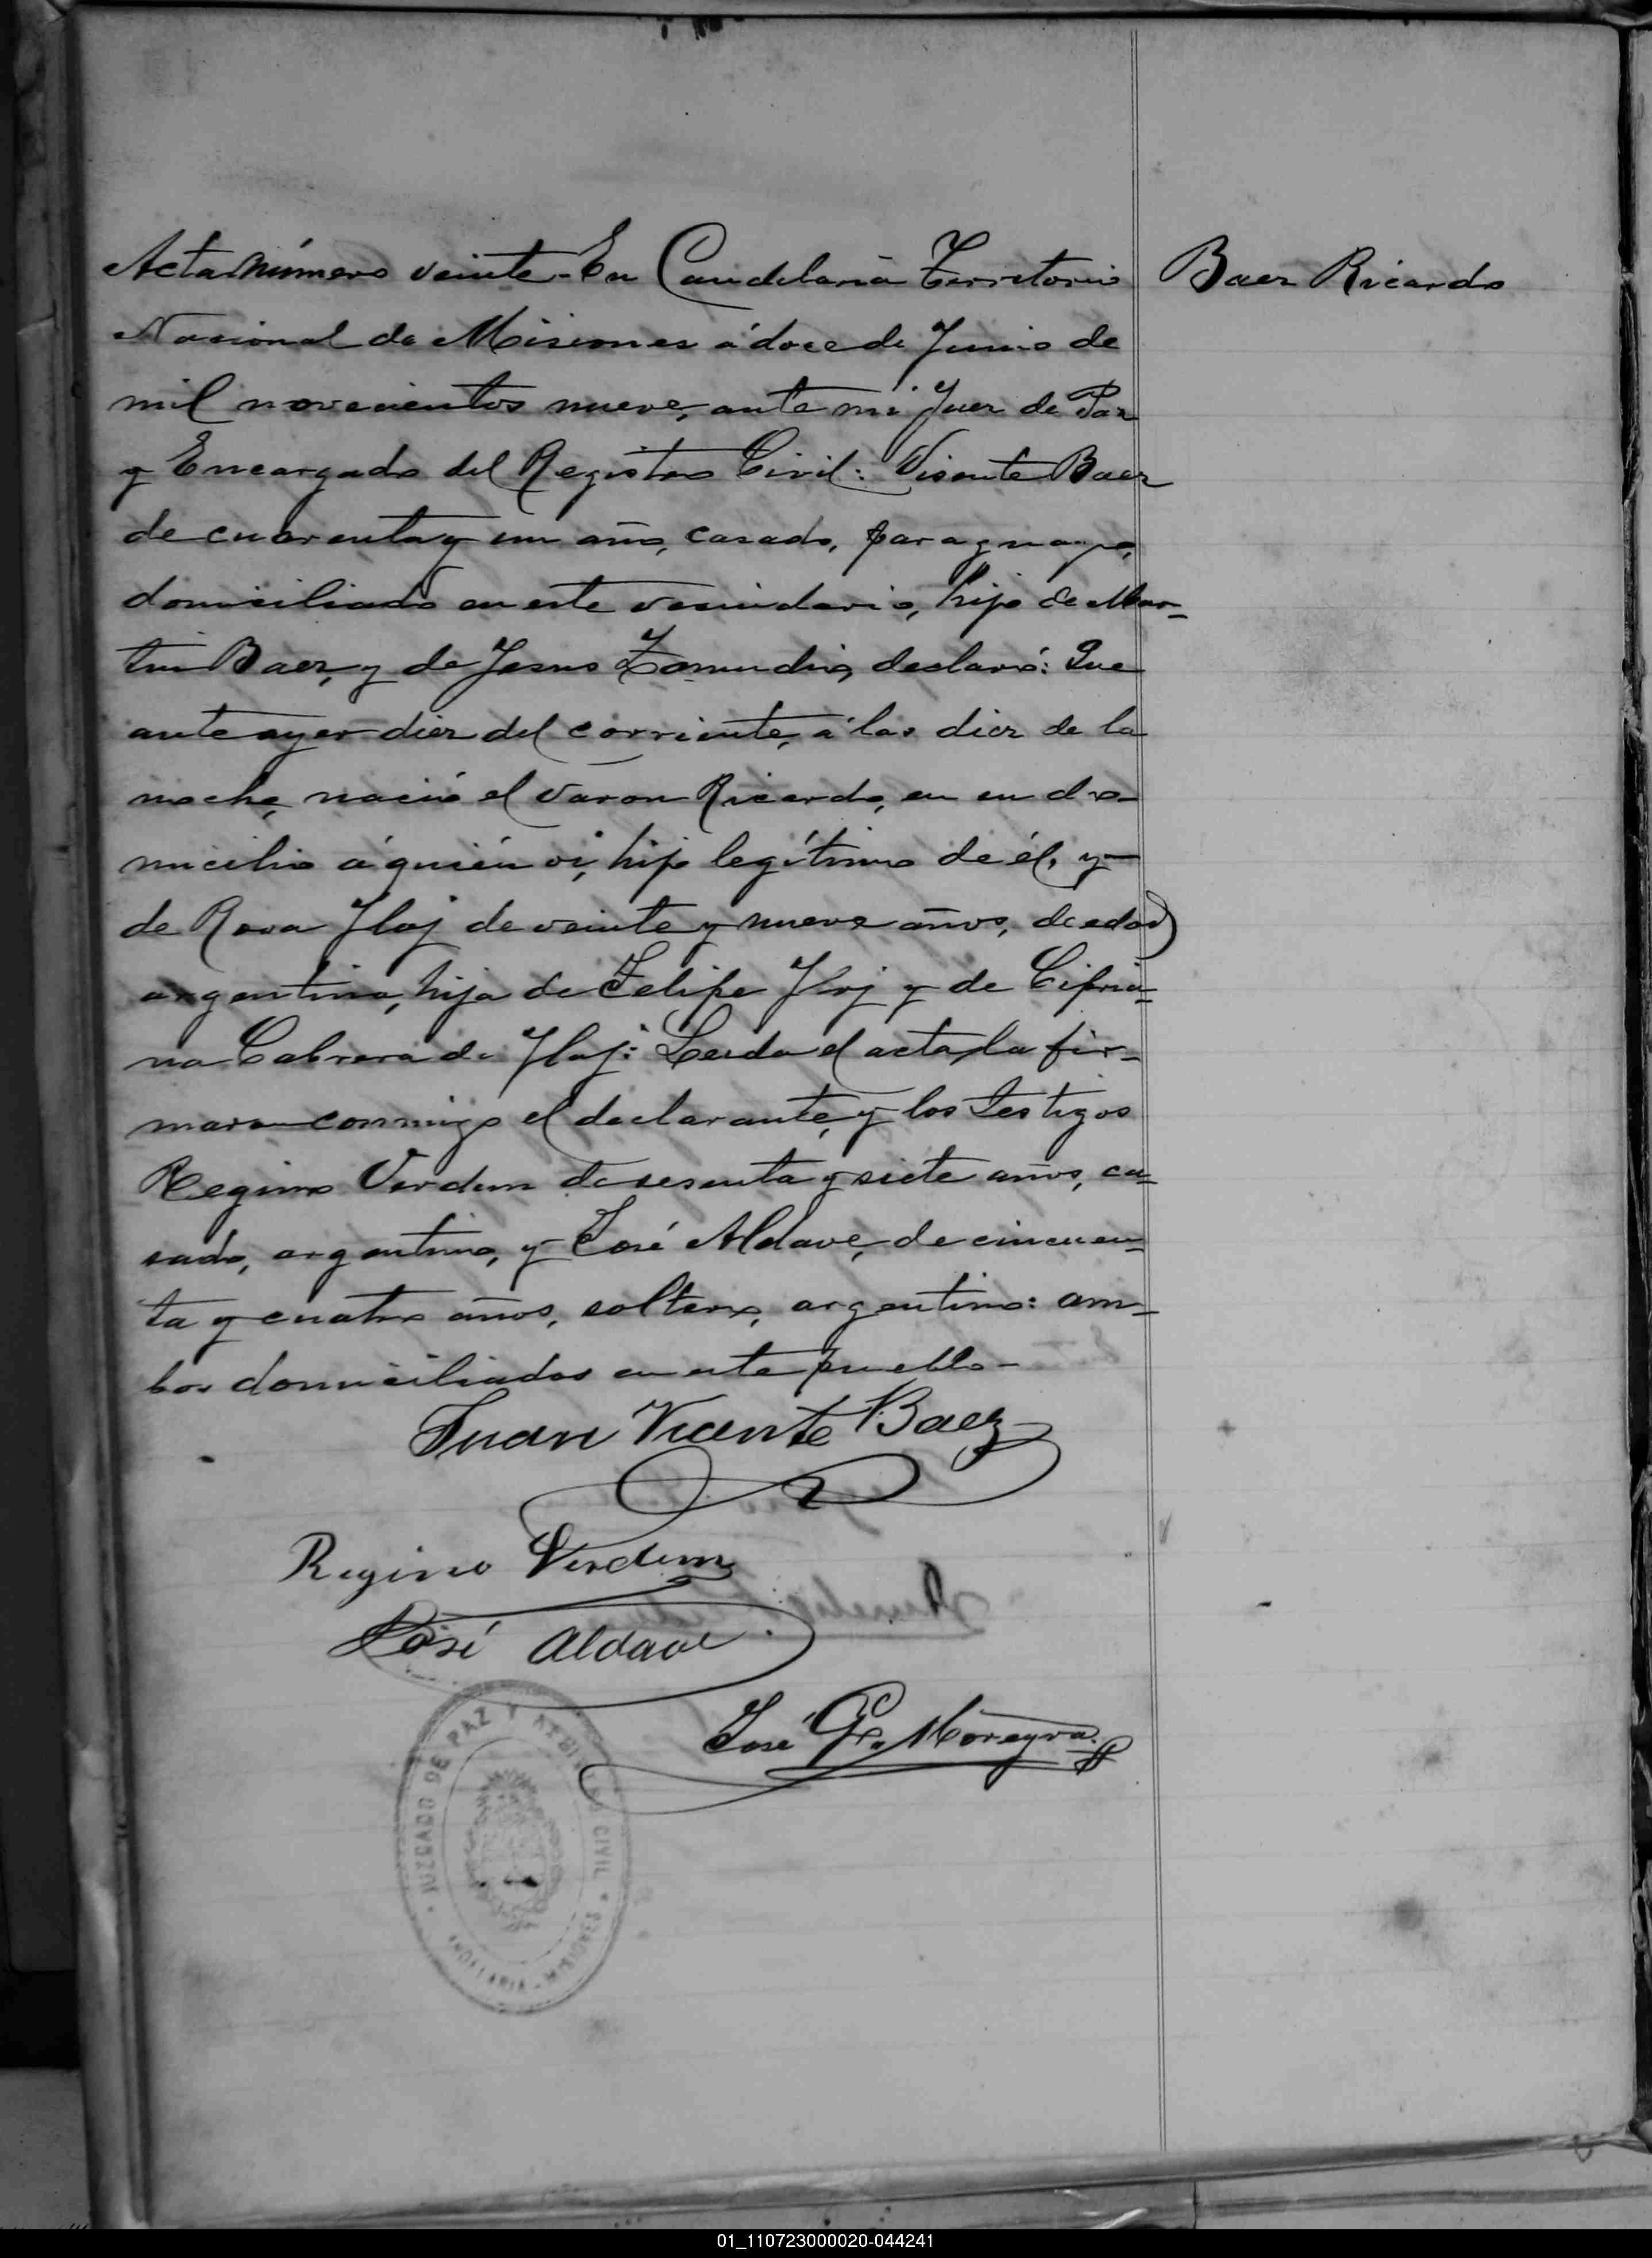 Acta número veinte - En Candelaria Territorio
Baez Ricardo
Nacional de Misiones á doce de Junio de
mil novecientos nueve, ante mi Juez de Paz
y Encargado del Registro Civil: Visente Baez
de cuarenta y un año, casado, paraguayo,
domisiliado en este vesindario, hijo de Mar-
tin Baez, y de Jesus Zamudio, declaró: Que
ante ayer diez del corriente, á las diez de la
noche, nació el varon Ricardo, en su do-
micilio á quién vi, hijo legítimo de él, y
de Rosa de veinte y nueve años, de edad
argentina, hija de Felipe y de Cipria-
na Cabrera de Leida el acta, la fir-
maron conmigo el declarante, y los testigos
Regino Verdum de sesenta y siete años, ca-
sado, argentino, y José Aldave, de cincuen-
ta y cuatro años, soltero, argentino: am-
bos domisiliados en este pueblo -
Juan Vicente Baez
Regino Verdum
José Aldave
José G. Moreyra
JUZGADO DE PAZ Y CIVIL
CANDELARIA - MISIONES
01_110723000020-044241